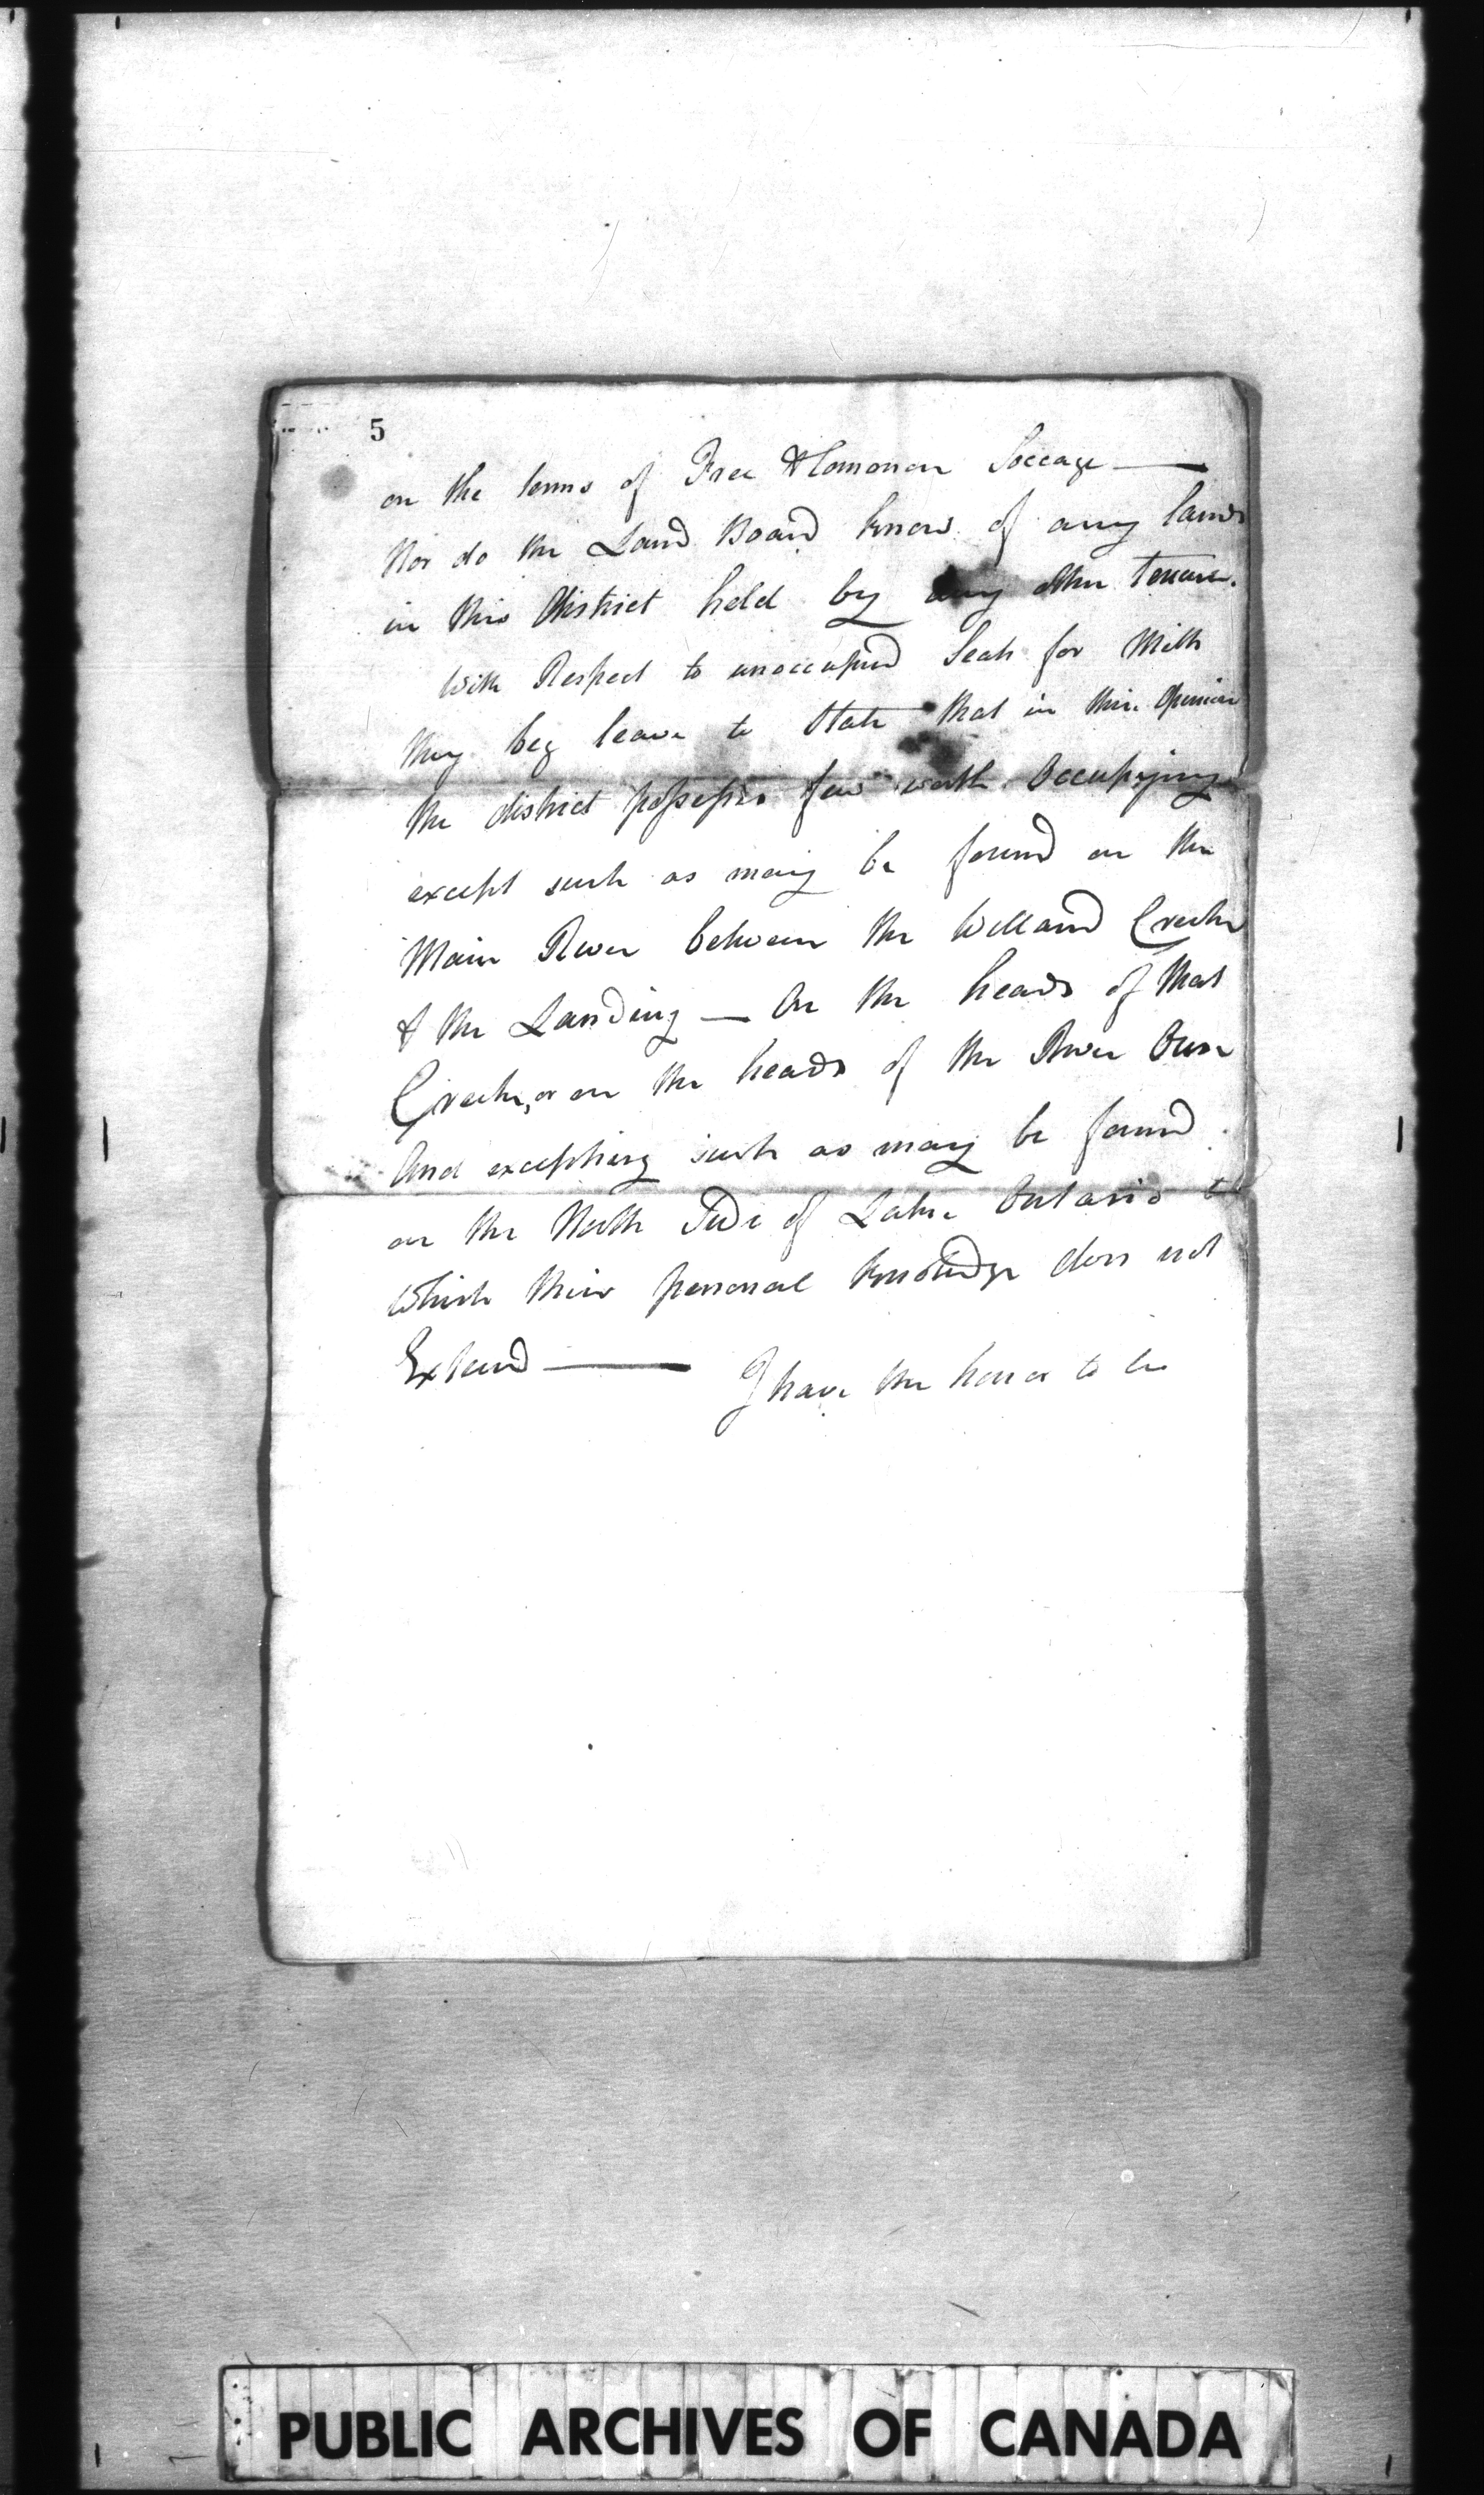 5
on the terms of Free & Common Soccage —
Nor do the Land Board know of any lands
in this District held by any other tenure.
With Respect to unoccupied Seats for Mills
they beg leave to State that in their Opinion
the district possesses few worth Occupying
except such as may be found on the
Main River between the Welland Creek
& the Landing — On the heads of that
Creek, or on the heads of the River
And excepting such as may be found
on the North Side of Lake Ontario to
Which their personal knowledge does not
Extend — I have the honor to be
PUBLIC ARCHIVES OF CANADA